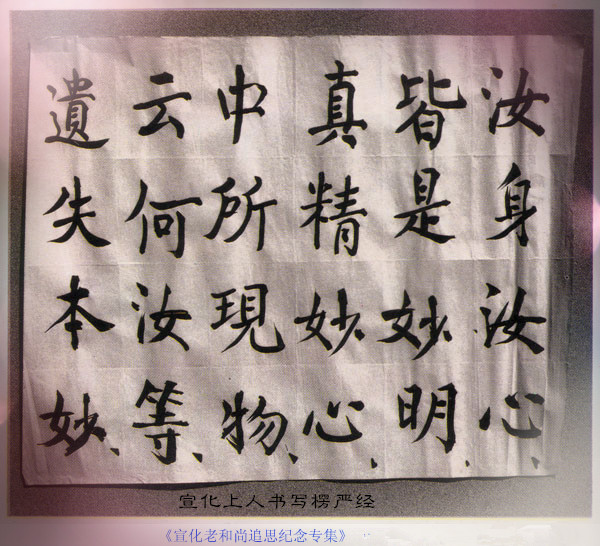 汝身汝心、
皆是妙明、
真精妙心、
中所現物、
云何汝等、
遺失本妙、
宣化上人书写楞严经
《宣化老和尚追思纪念专集》